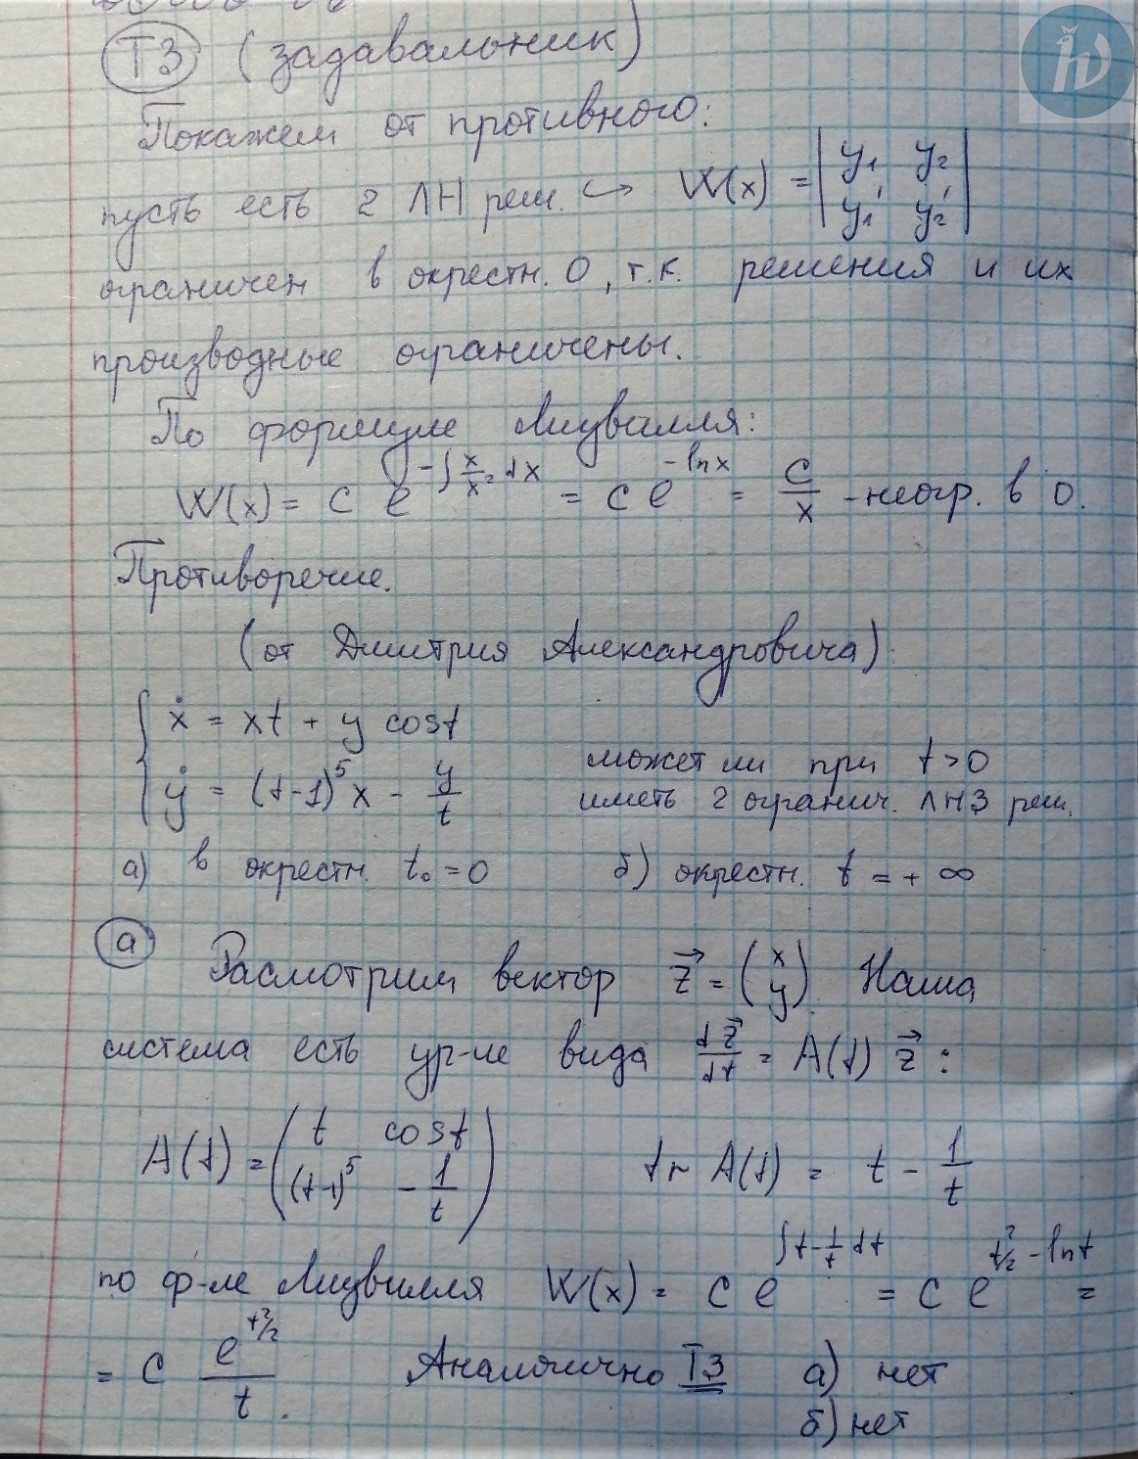 Т3 (задавальник)
Покажем от противного:
пусть есть 2 ЛН реш. ↪ W(x) = | y₁ y₂ |
| y₁' y₂' |
ограничен в окрестн. 0, т.к. решения и их
производные ограничены.
По формуле Лиувилля:
W(x) = C e^{-∫ x/x² dx} = C e^{-ln x} = C/x - неогр. в 0.
Противоречие.
(от Дмитрия Александровича)
{ ẋ = xt + y cost
{ ẏ = (t-1)⁵x - y/t
может ли при t>0
иметь 2 огранич. ЛНЗ реш.
а) в окрестн. t₀ = 0 б) окрестн. t = + ∞
а Расмотрим вектор z⃗ = (x y). Наша
система есть ур-ие вида dz⃗/dt = A(t) z⃗ :
A(t) = ( t cost
(t-1)⁵ - 1/t ) tr A(t) = t - 1/t
по ф-ле Лиувилля W(x) = C e^{∫t - 1/t dt} = C e^{t²/2 - ln t} =
= C e^{t²/2}/t . Аналогично T3 а) нет
б) нет